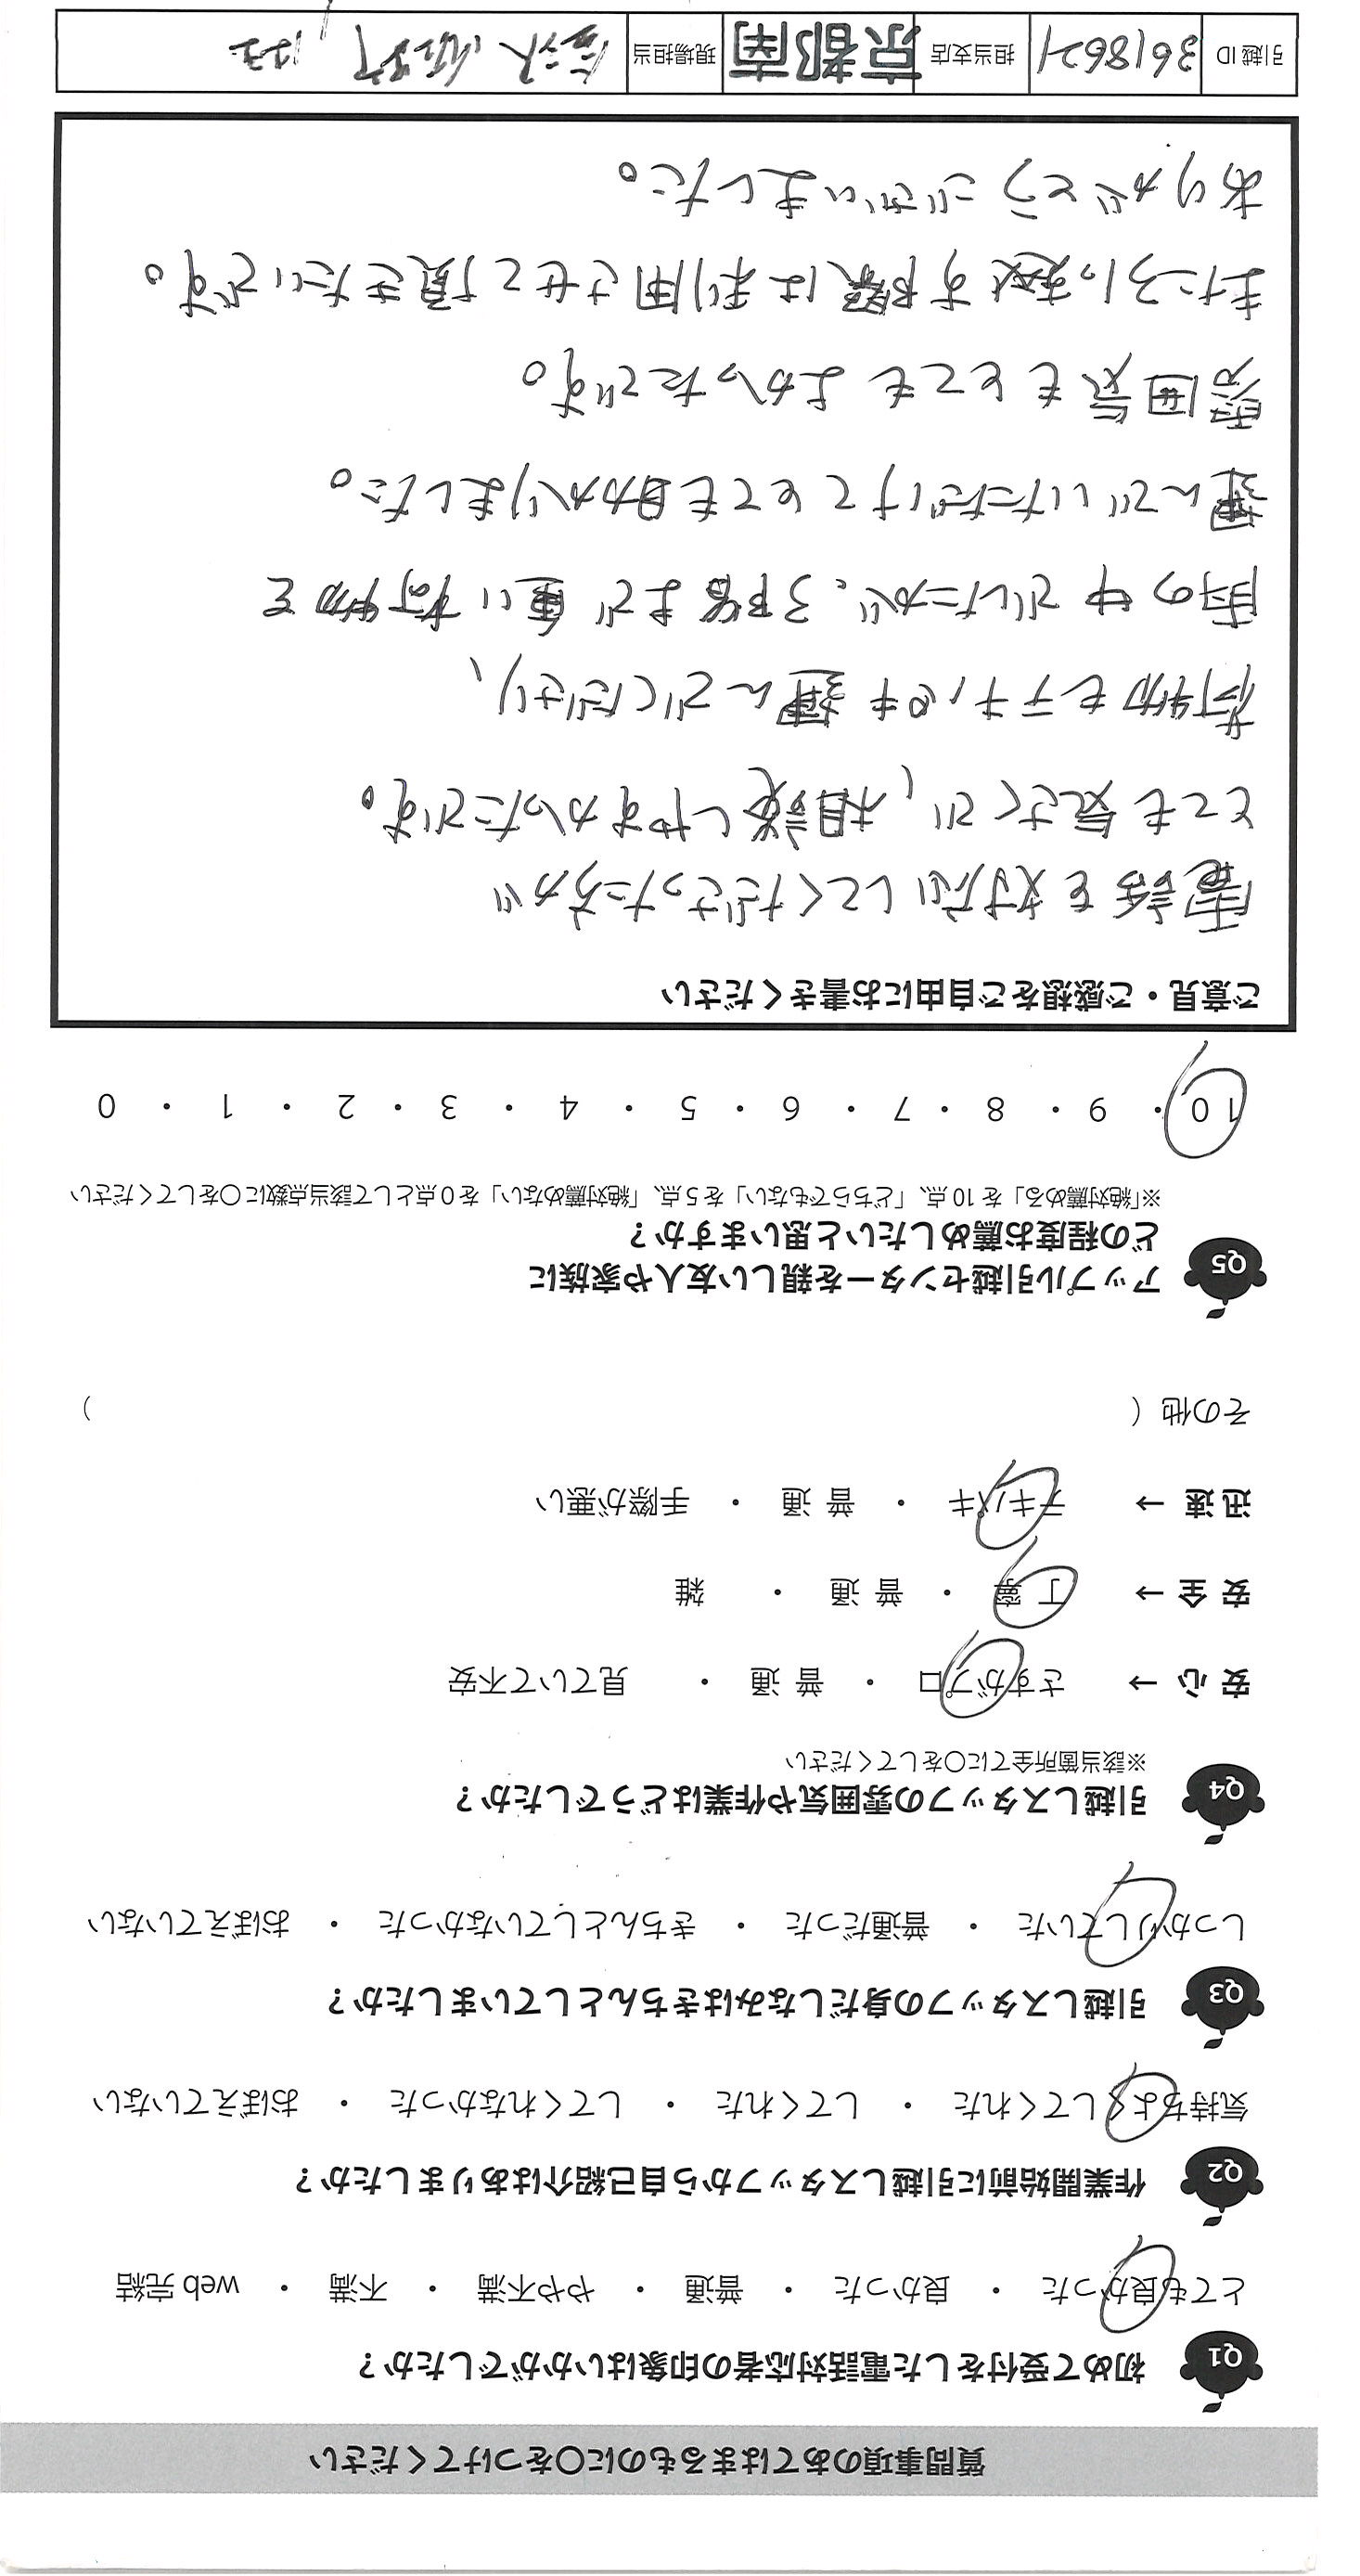 質問事項のあてはまるものに〇をつけてください
Q1 初めて受付をした電話対応者の印象はいかがでしたか？
とても良かった ・ 良かった ・ 普通 ・ やや不満 ・ 不満 ・ web 完結
Q2 作業開始前に引越しスタッフから自己紹介はありましたか？
気持ちよくしてくれた ・ してくれた ・ してくれなかった ・ おぼえていない
Q3 引越しスタッフの身だしなみはきちんとしていましたか？
しっかりしていた ・ 普通だった ・ きちんとしていなかった ・ おぼえていない
Q4 引越しスタッフの雰囲気や作業はどうでしたか？
※該当箇所全てに〇をしてください
安心 → さすがプロ ・ 普通 ・ 見ていて不安
安全 → 丁寧 ・ 普通 ・ 雑
迅速 → テキパキ ・ 普通 ・ 手際が悪い
その他（ ）
Q5 アップル引越センターを親しい友人や家族に
どの程度お薦めしたいと思いますか？
※「絶対薦める」を10点、「どちらでもない」を5点、「絶対薦めない」を0点として該当点数に〇をしてください
10 ・ 9 ・ 8 ・ 7 ・ 6 ・ 5 ・ 4 ・ 3 ・ 2 ・ 1 ・ 0
ご意見・ご感想をご自由にお書きください
電話を対応してくださった方が
とても気さくで、相談しやすかったです。
荷物もテキパキ運んでくださり、
雨の中でしたが、3階まで重い荷物を
運んでいただけてとても助かりました。
雰囲気もとてもよかったです。
また引っ越す際は利用させて頂きたいです。
ありがとうございました。
引越ID 3618621 担当支店 京都南 現場担当